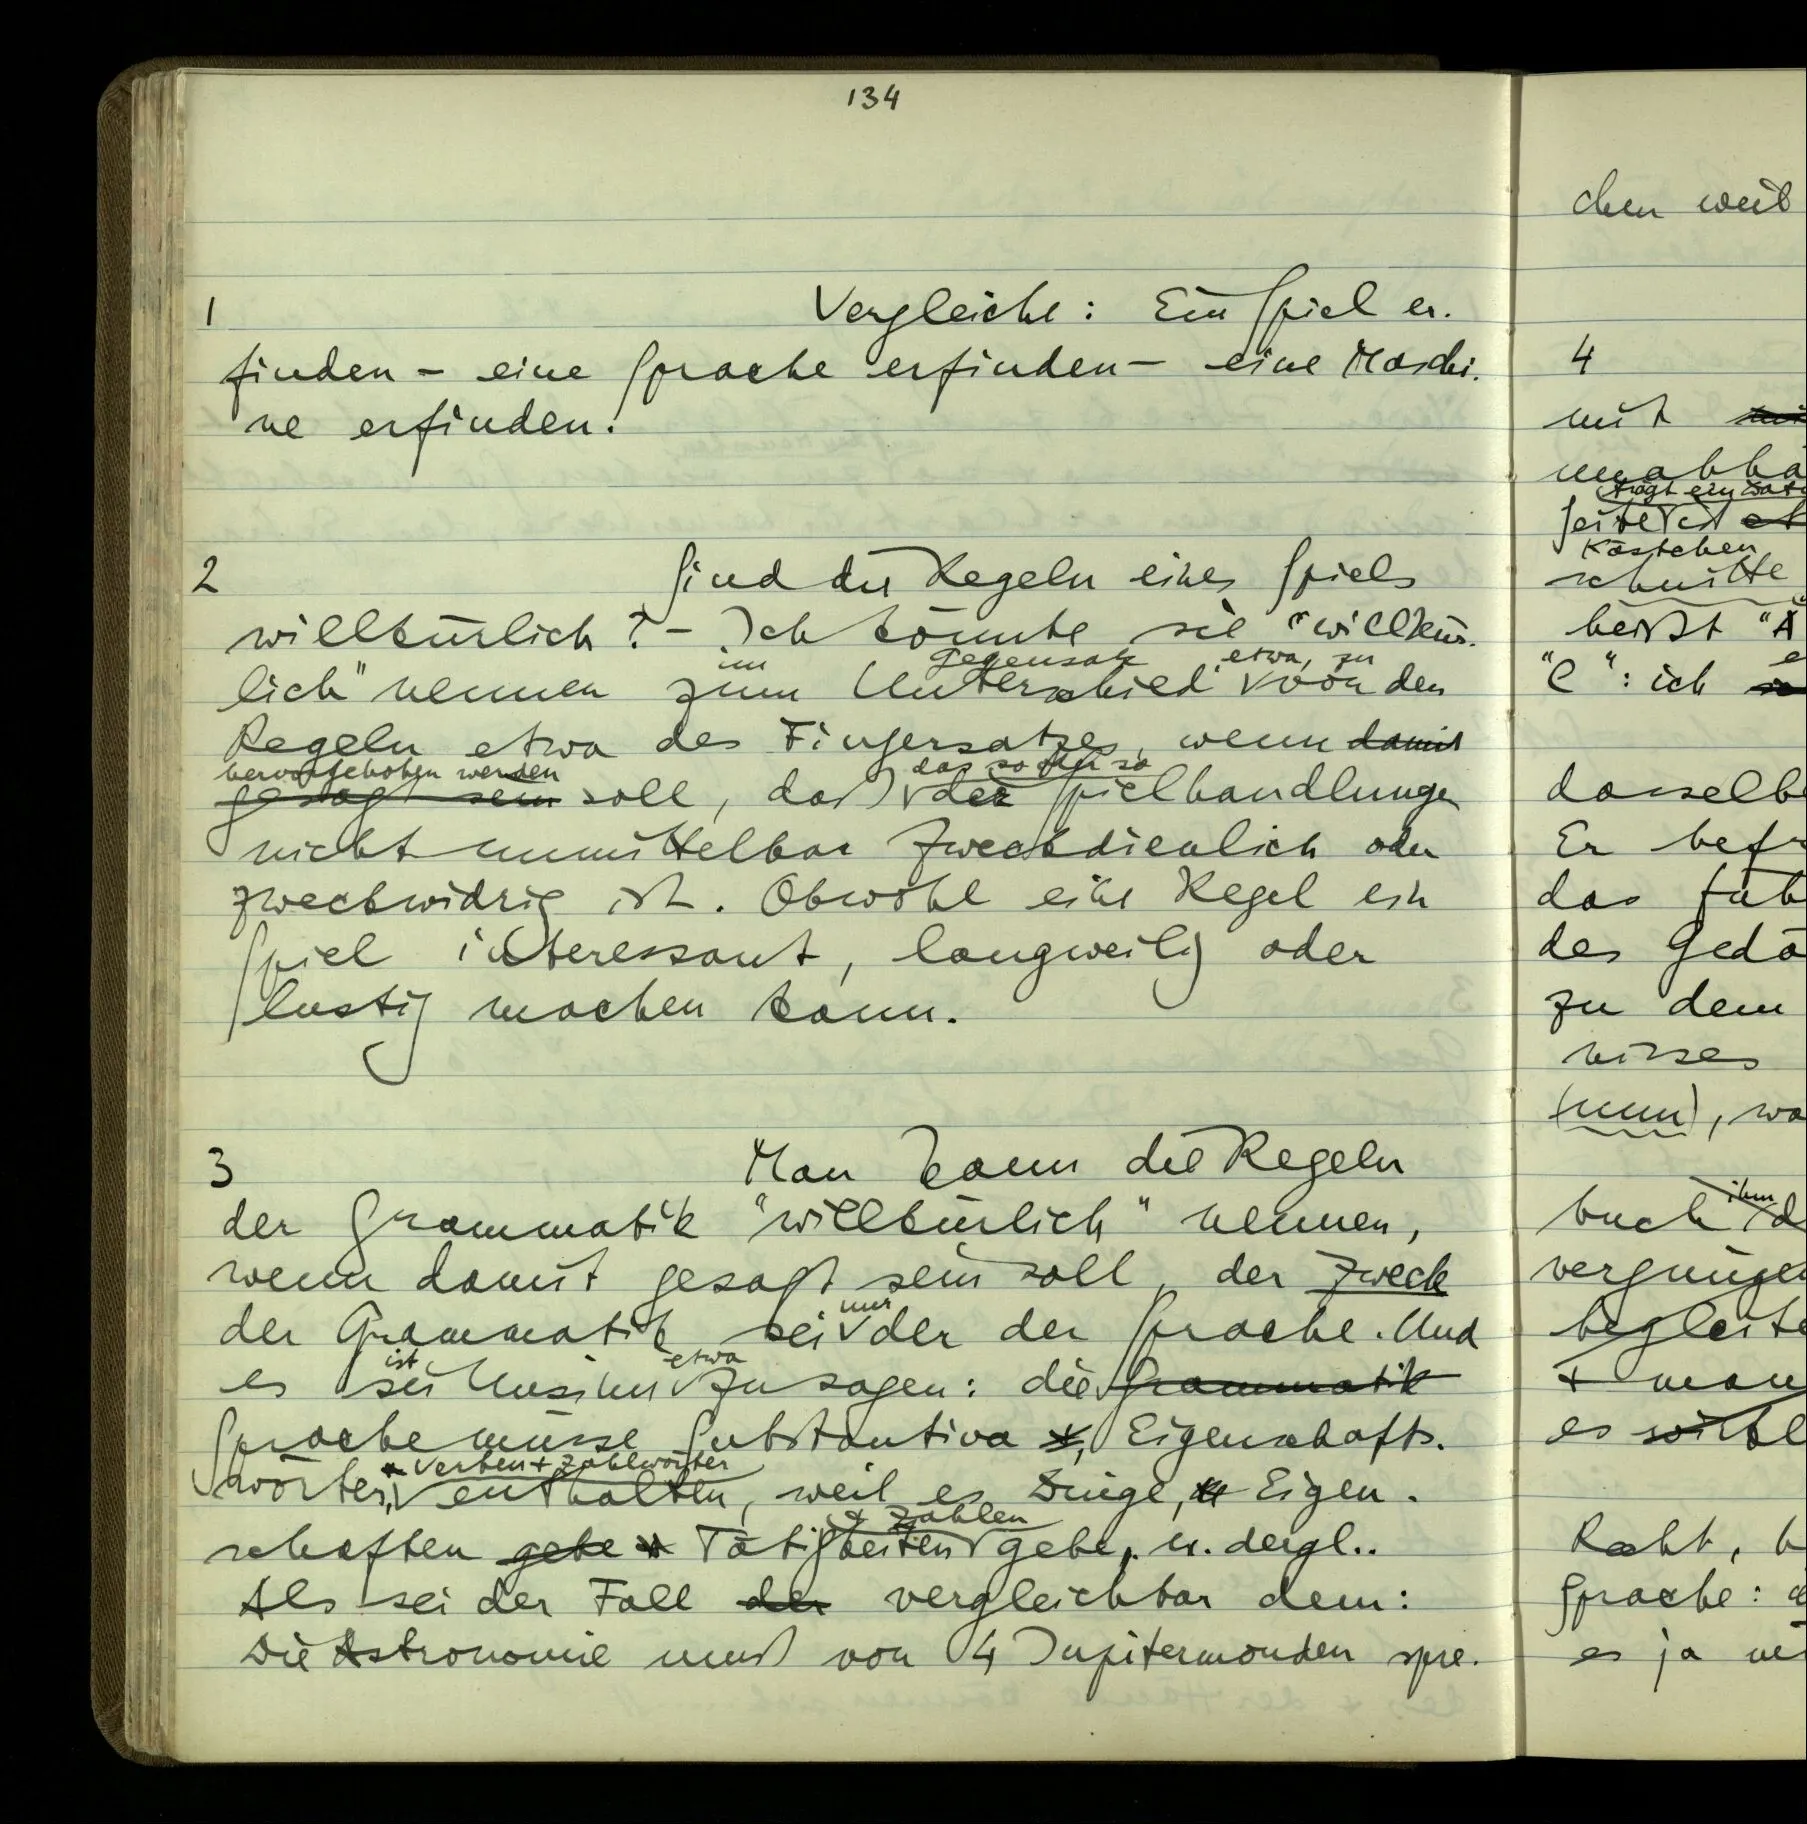 134
1
Vergleiche: Ein Spiel er-
finden – eine Sprache erfinden – eine Maschi-
ne erfinden.
2
Sind die Regeln eines Spiels
willkürlich? – Ich könnte sie "willkür-
im Gegensatz etwa, zu
lich" nennen zum Unterschied von den
Regeln etwa des Fingersatzes, wenn damit
hervorgehoben werden das so oder so
gesagt sein soll, daß der Spielhandlungen
nicht unmittelbar zweckdienlich oder
zweckwidrig ist. Obwohl eine Regel ein
Spiel interessant, langweilig oder
lustig machen kann.
3
Man kann die Regeln
der Grammatik "willkürlich" nennen,
wenn damit gesagt sein soll, der Zweck
nur
der Grammatik sei der der Sprache. Und
ist etwa
es sei Unsinn zu sagen: die Grammatik
Sprache müsse Substantiva +, Eigenschafts-
+ Verben + Zahlwörter
wörter, enthalten, weil es Dinge, + Eigen-
+ Zahlen
schaften gebe + Tätigkeiten gebe, u. dergl..
Als sei der Fall der vergleichbar dem:
Die Astronomie muß von 4 Jupitermonden spre-
chen weil
4
mit
unabhä
trägt ein
Kästchen
schnitte
heißt "A
"C": ich
dasselbe
Er befr
das füh
des Gedä
zu dem
nisses
(nun), wa
ihm
buch d
vergnügen
begleite
+ man
es
Recht, h
Sprache: d
es ja ni